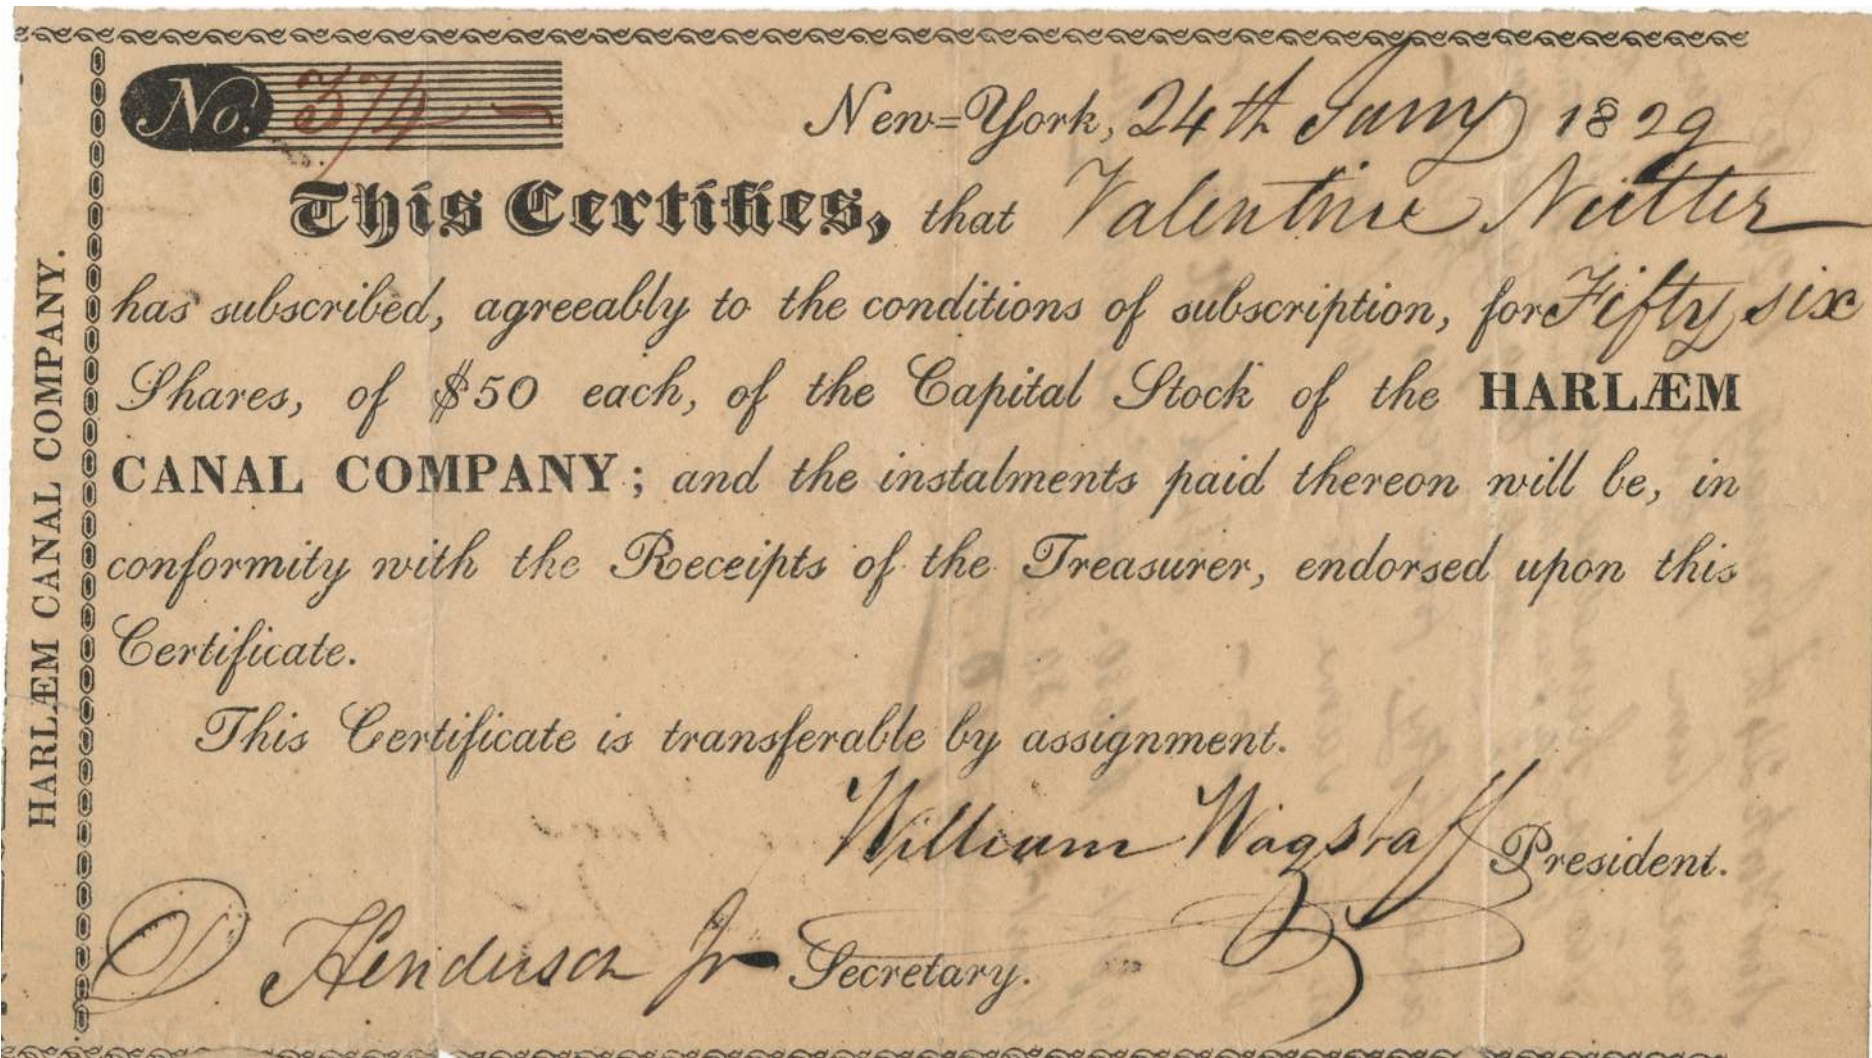 HARLÆM CANAL COMPANY.
No. 374
New=York, 24th Jany 1829
This Certifies, that Valentine Nutter
has subscribed, agreeably to the conditions of subscription, for Fifty six
Shares, of $50 each, of the Capital Stock of the HARLÆM
CANAL COMPANY; and the instalments paid thereon will be, in
conformity with the Receipts of the Treasurer, endorsed upon this
Certificate.
This Certificate is transferable by assignment.
William Wagstaff President.
D. Henderson Jr Secretary.